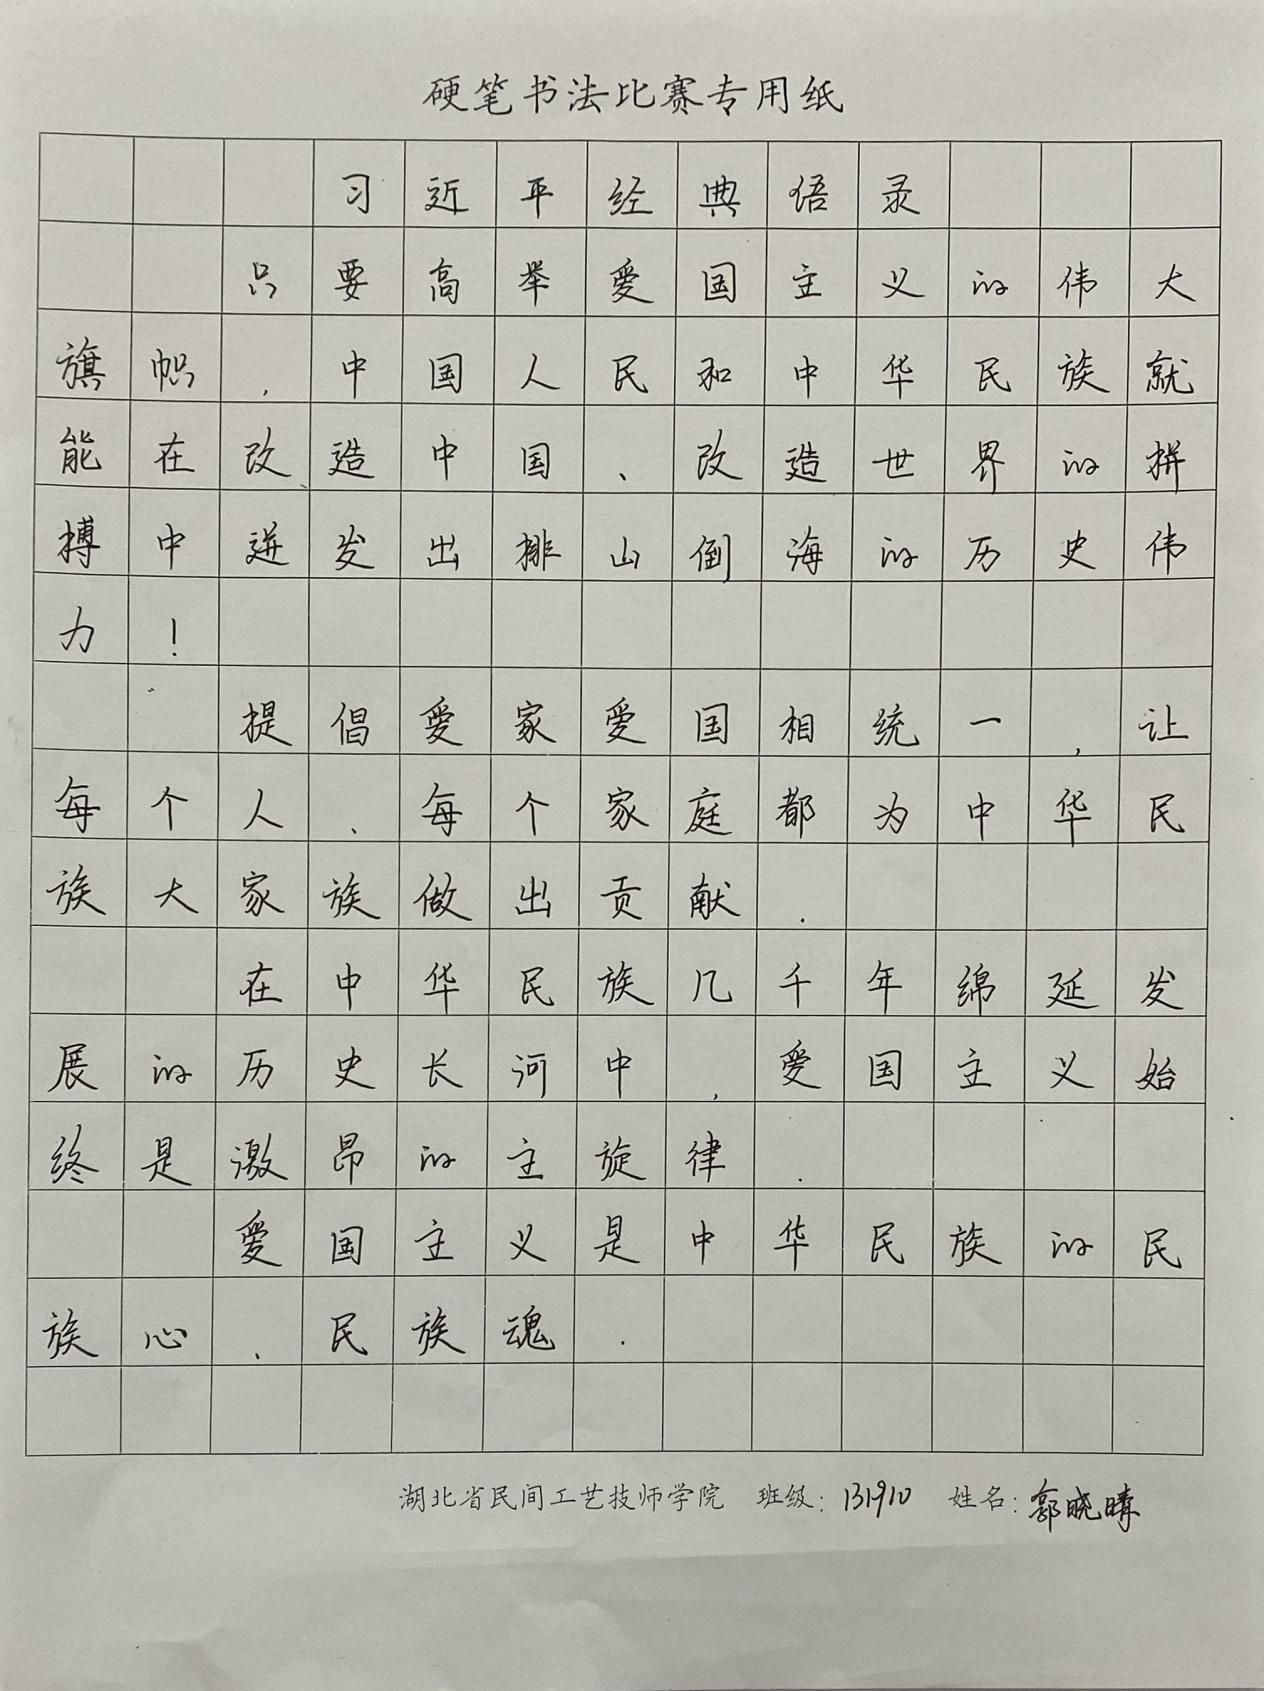 硬笔书法比赛专用纸
习近平经典语录
只要高举爱国主义的伟大
旗帜，中国人民和中华民族就
能在改造中国、改造世界的拼
搏中迸发出排山倒海的历史伟
力！
提倡爱家爱国相统一，让
每个人、每个家庭都为中华民
族大家族做出贡献.
在中华民族几千年绵延发
展的历史长河中，爱国主义始
终是激昂的主旋律.
爱国主义是中华民族的民
族心、民族魂.
湖北省民间工艺技师学院 班级：131910 姓名：郭晓晴